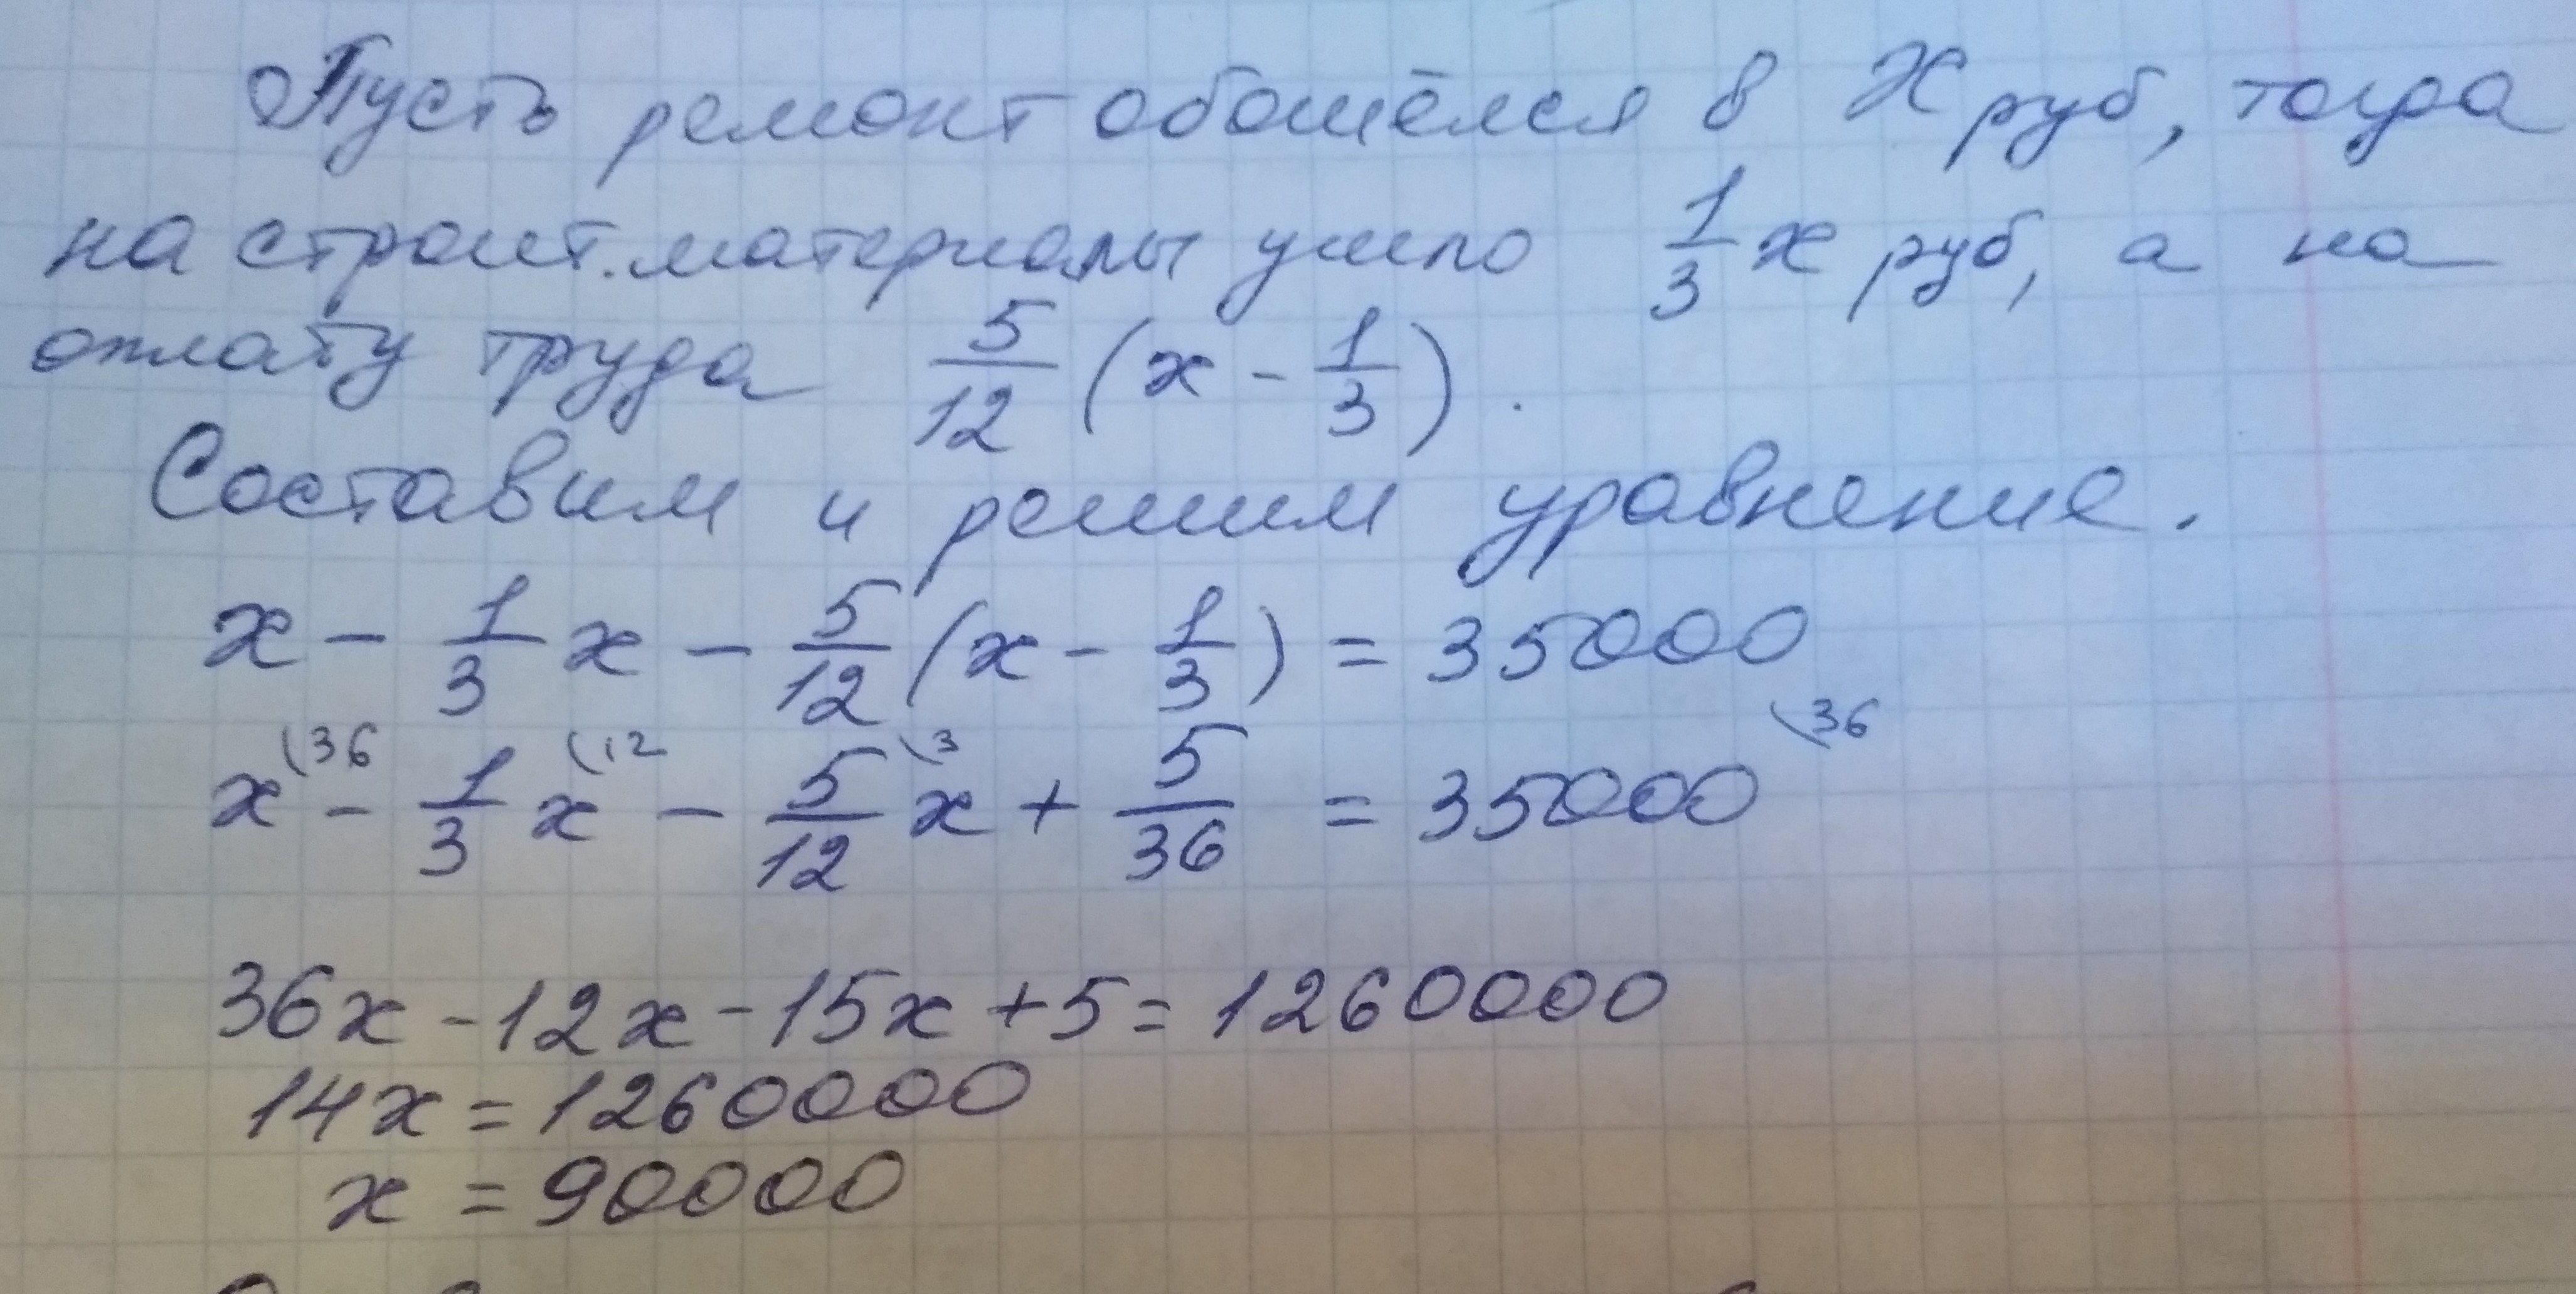 Пусть ремонт обошёлся в x руб, тогда
на строит. материалы ушло 1/3 x руб, а на
оплату труда 5/12 (x - 1/3).
Составим и решим уравнение.
x - 1/3 x - 5/12 (x - 1/3) = 35000
x\36 - 1/3 x\12 - 5/12 x\3 + 5/36 = 35000\36
36x - 12x - 15x + 5 = 1260000
14x = 1260000
x = 90000